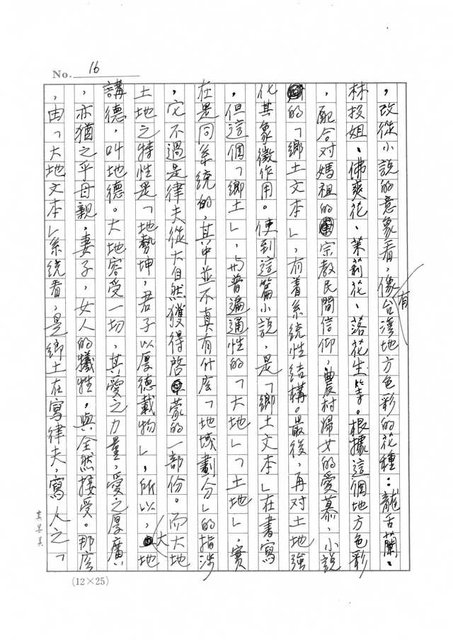 No. 16
，改從小說的意象看，像有台灣地方色彩的花種：龍舌蘭、
林投姐、佛爽花、茉莉花、落花生等。根據這個地方色彩
，配合對媽祖的宗教民間信仰，農村婦女的愛慕，小說
的「鄉土文本」，有着系統性結構。最後，再對土地強
化其象徵作用。使到這篇小說，是「鄉土文本」在書寫
，但這個「鄉土」，與普遍通性的「大地」「土地」，實
在是同系統的，其中並不真有什么「地域劃分」的指涉
，它不過是律夫從大自然獲得啓蒙的一部份。而大地
土地之特性是「地勢坤，君子以厚德載物」，所以，大地
講德，叫地德。大地容受一切，其愛之力量，愛之厚廣
，亦猶之乎母親，妻子，女人的犧牲，與全然接受。那麼
，由「大地文本」系統看，是鄉土在寫律夫，寫人之「
(12×25)